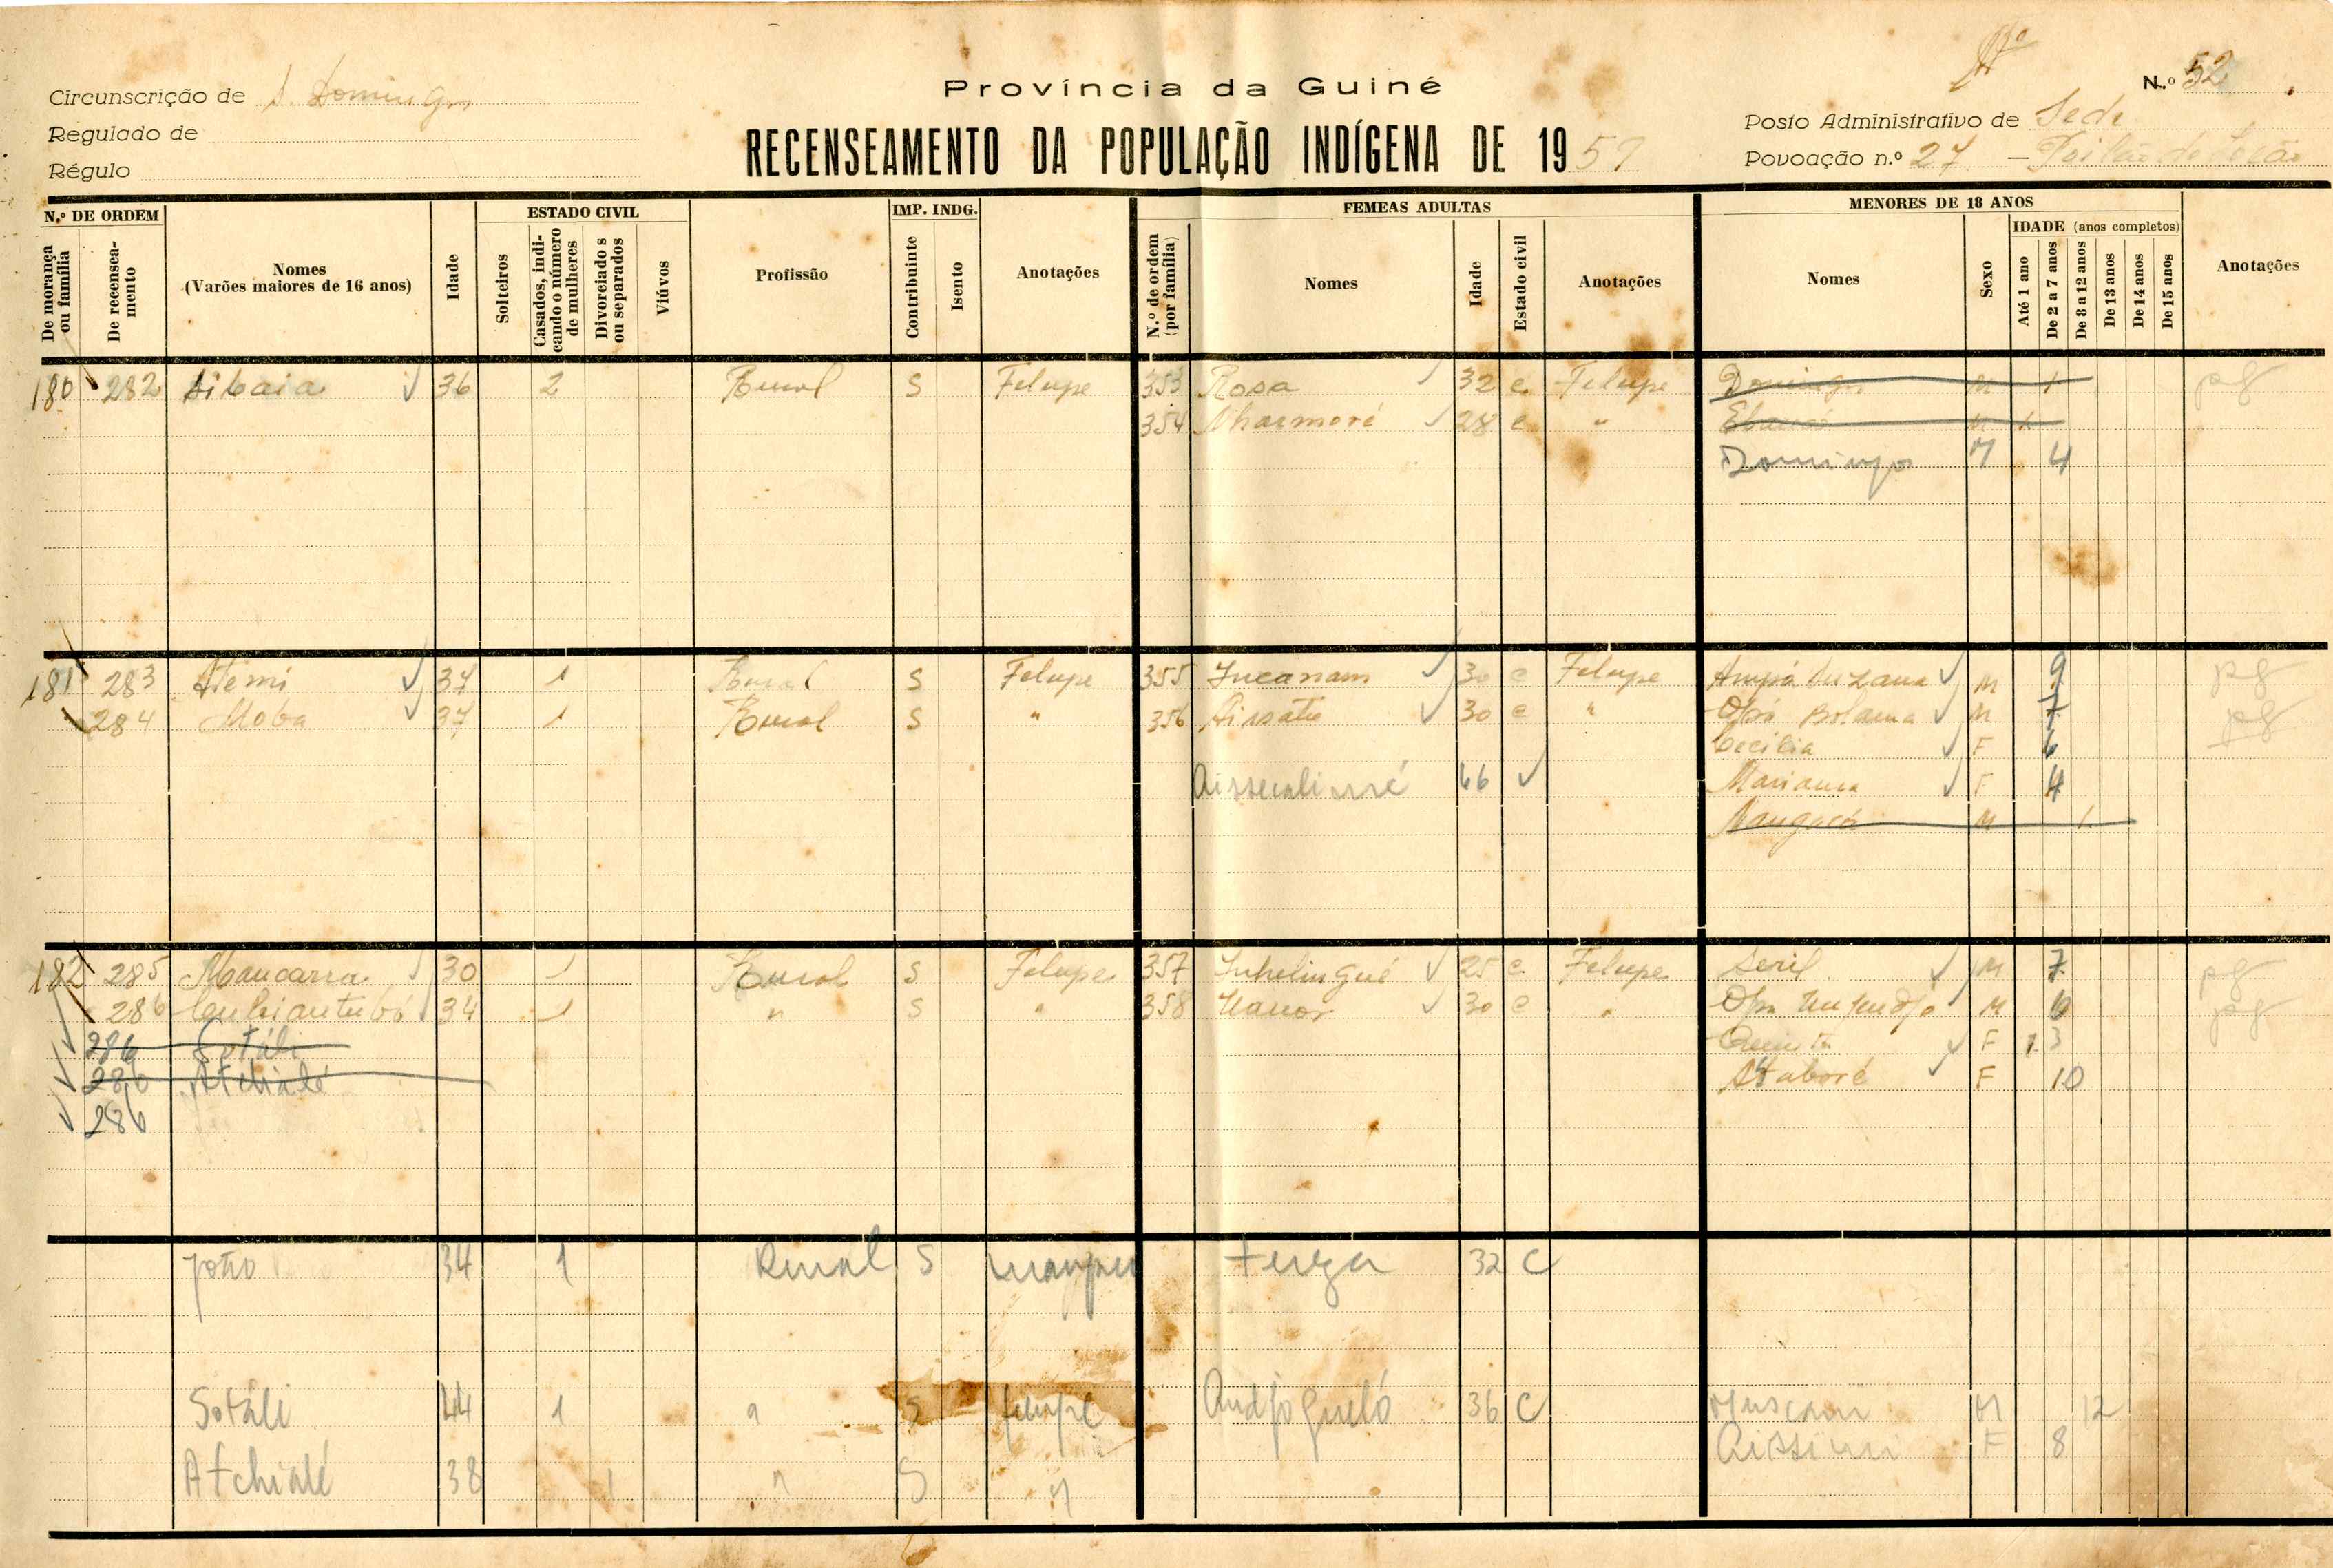 Província da Guiné
N.º 52
Circunscrição de S. Domingos
Regulado de
Régulo
RECENSEAMENTO DA POPULAÇÃO INDÍGENA DE 195
Posto Administrativo de Sede
Povoação n.º 27 —
N.º DE ORDEM
De morança ou família
De recenseamento
Nomes
(Varões maiores de 16 anos)
Idade
ESTADO CIVIL
Solteiros
Casados, indicando o número de mulheres
Divorciados ou separados
Viúvos
Profissão
IMP. INDG.
Contribuinte
Isento
Anotações
FEMEAS ADULTAS
N.º de ordem (por família)
Nomes
Idade
Estado civil
Anotações
MENORES DE 18 ANOS
Nomes
Sexo
IDADE (anos completos)
Até 1 ano
De 2 a 7 anos
De 8 a 12 anos
De 13 anos
De 14 anos
De 15 anos
Anotações
180 282 Aibaia 36 2 Rural S Felupe 353 Rosa 32 c Felupe Domingos M 1 pg
354 Nharmoré 28 c " M 1
Domingos M 4
181 283 Atemi 37 1 Rural S Felupe 355 Jucanam 30 c Felupe M 9 pg
284 Moba 37 1 Rural S " 356 Aissatu 30 c " Opá Bolama M 7 pg
Cecília F 6
46 Mariama F 4
M 1
182 285 Mancarra 30 1 Rural S Felupe 357 25 c Felupe Seril M 7 pg
286 34 1 " S " 358 30 c " M 6 pg
286 Sotáli F 1 3
286 Atchialé Ataboré F 10
286
João 34 1 Rural S 32 C
Sotáli 44 1 " S felupe 36 C M 12
Atchialé 38 1 " S " F 8